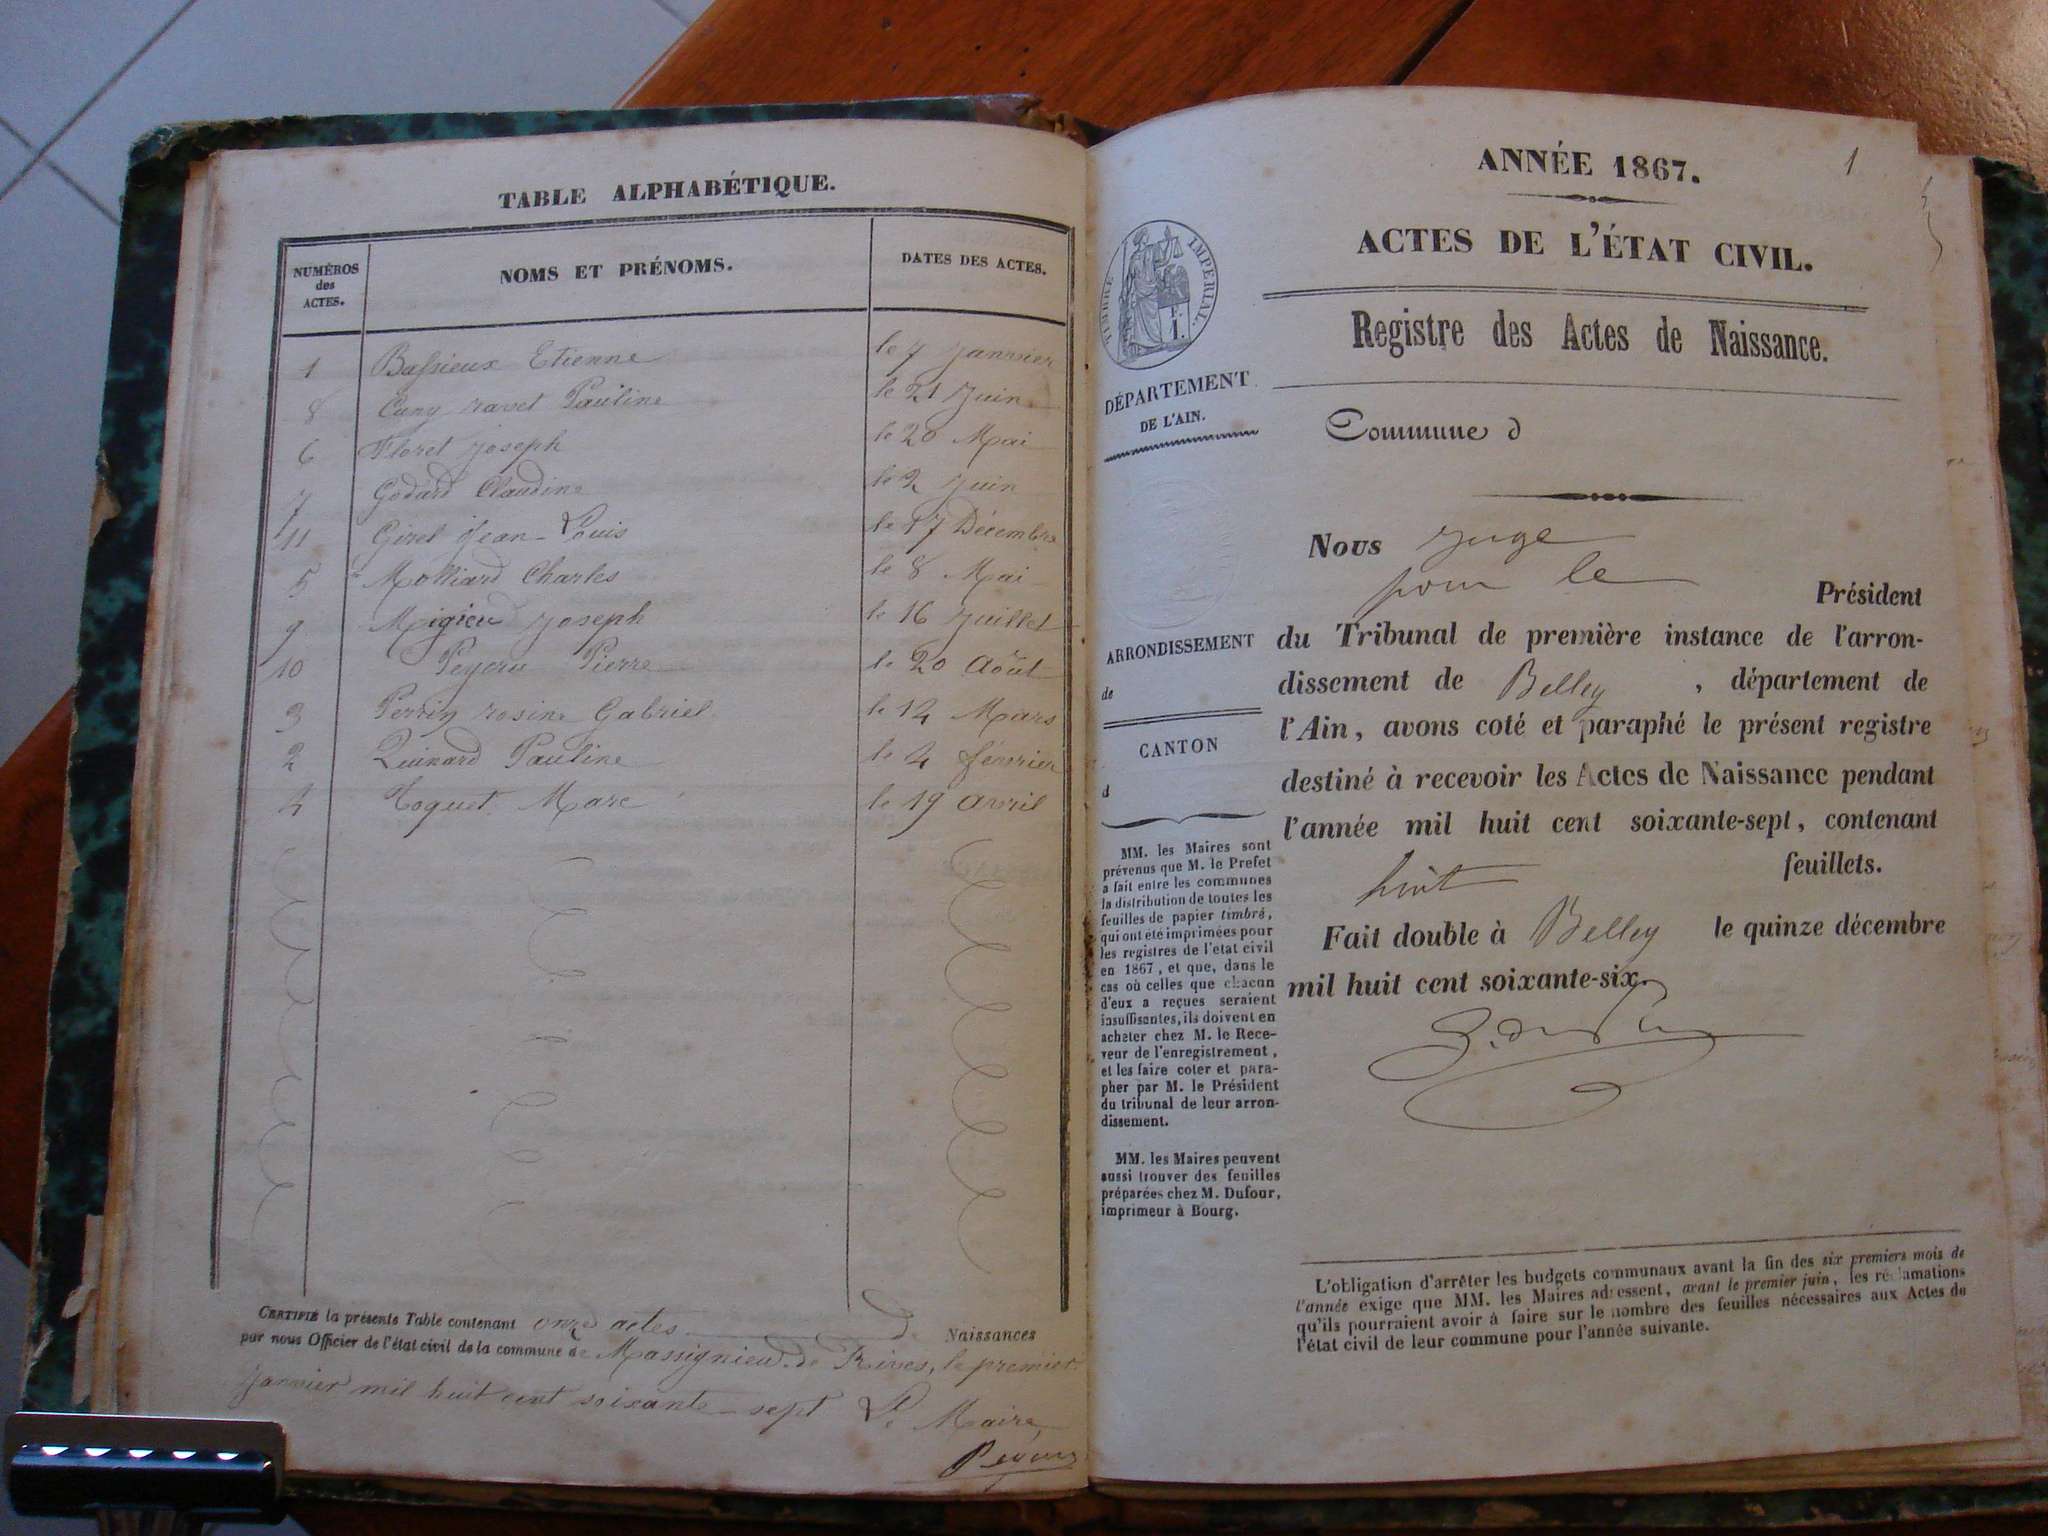 TABLE ALPHABÉTIQUE.
NUMÉROS des ACTES. NOMS ET PRÉNOMS. DATES DES ACTES.
1 Bassieux Etienne le 7 Janvier
8 Cuny ravet Pauline le 21 Juin
6 Floret Joseph le 20 Mai
7 Godard Claudine le 2 Juin
11 Giret Jean-Louis le 17 Décembre
5 Molliard Charles le 8 Mai
9 Migieu Joseph le 16 Juillet
10 Pierre le 20 Août
3 Perrin rosine Gabriel le 12 Mars
2 Quinard Pauline le 4 février
4 Toquet Marc le 19 avril
CERTIFIÉ la présente Table contenant onze actes de Naissances
par nous Officier de l'état civil de la commune de Massignieu de Rives, le premier
Janvier mil huit cent soixante-sept Le Maire,
1
ANNÉE 1867.
ACTES DE L'ÉTAT CIVIL.
Registre des Actes de Naissance.
TIMBRE IMPÉRIAL.
F.
1.
DÉPARTEMENT
DE L'AIN.
Commune d
Nous juge
pour le
Président
ARRONDISSEMENT
de
CANTON
d
du Tribunal de première instance de l'arron-
dissement de Belley, département de
l'Ain, avons coté et paraphé le présent registre
destiné à recevoir les Actes de Naissance pendant
l'année mil huit cent soixante-sept, contenant
huit feuillets.
Fait double à Belley le quinze décembre
mil huit cent soixante-six.
MM. les Maires sont
prévenus que M. le Prefet
a fait entre les communes
la distribution de toutes les
feuilles de papier timbré,
qui ont été imprimées pour
les registres de l'etat civil
en 1867, et que, dans le
cas où celles que chacun
d'eux a reçues seraient
insuffisantes, ils doivent en
acheter chez M. le Rece-
veur de l'enregistrement,
et les faire coter et para-
pher par M. le Président
du tribunal de leur arron-
dissement.
MM. les Maires peuvent
aussi trouver des feuilles
préparées chez M. Dufour,
imprimeur à Bourg.
L'obligation d'arrêter les budgets communaux avant la fin des six premiers mois de
l'année exige que MM. les Maires adressent, avant le premier juin, les réclamations
qu'ils pourraient avoir à faire sur le nombre des feuilles nécessaires aux Actes de
l'état civil de leur commune pour l'année suivante.